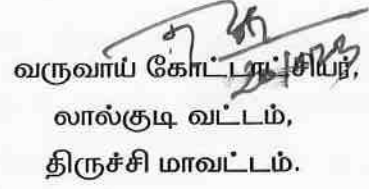 வருவாய் கோட்டாட்சியர்,
லால்குடி வட்டம்,
திருச்சி மாவட்டம்.